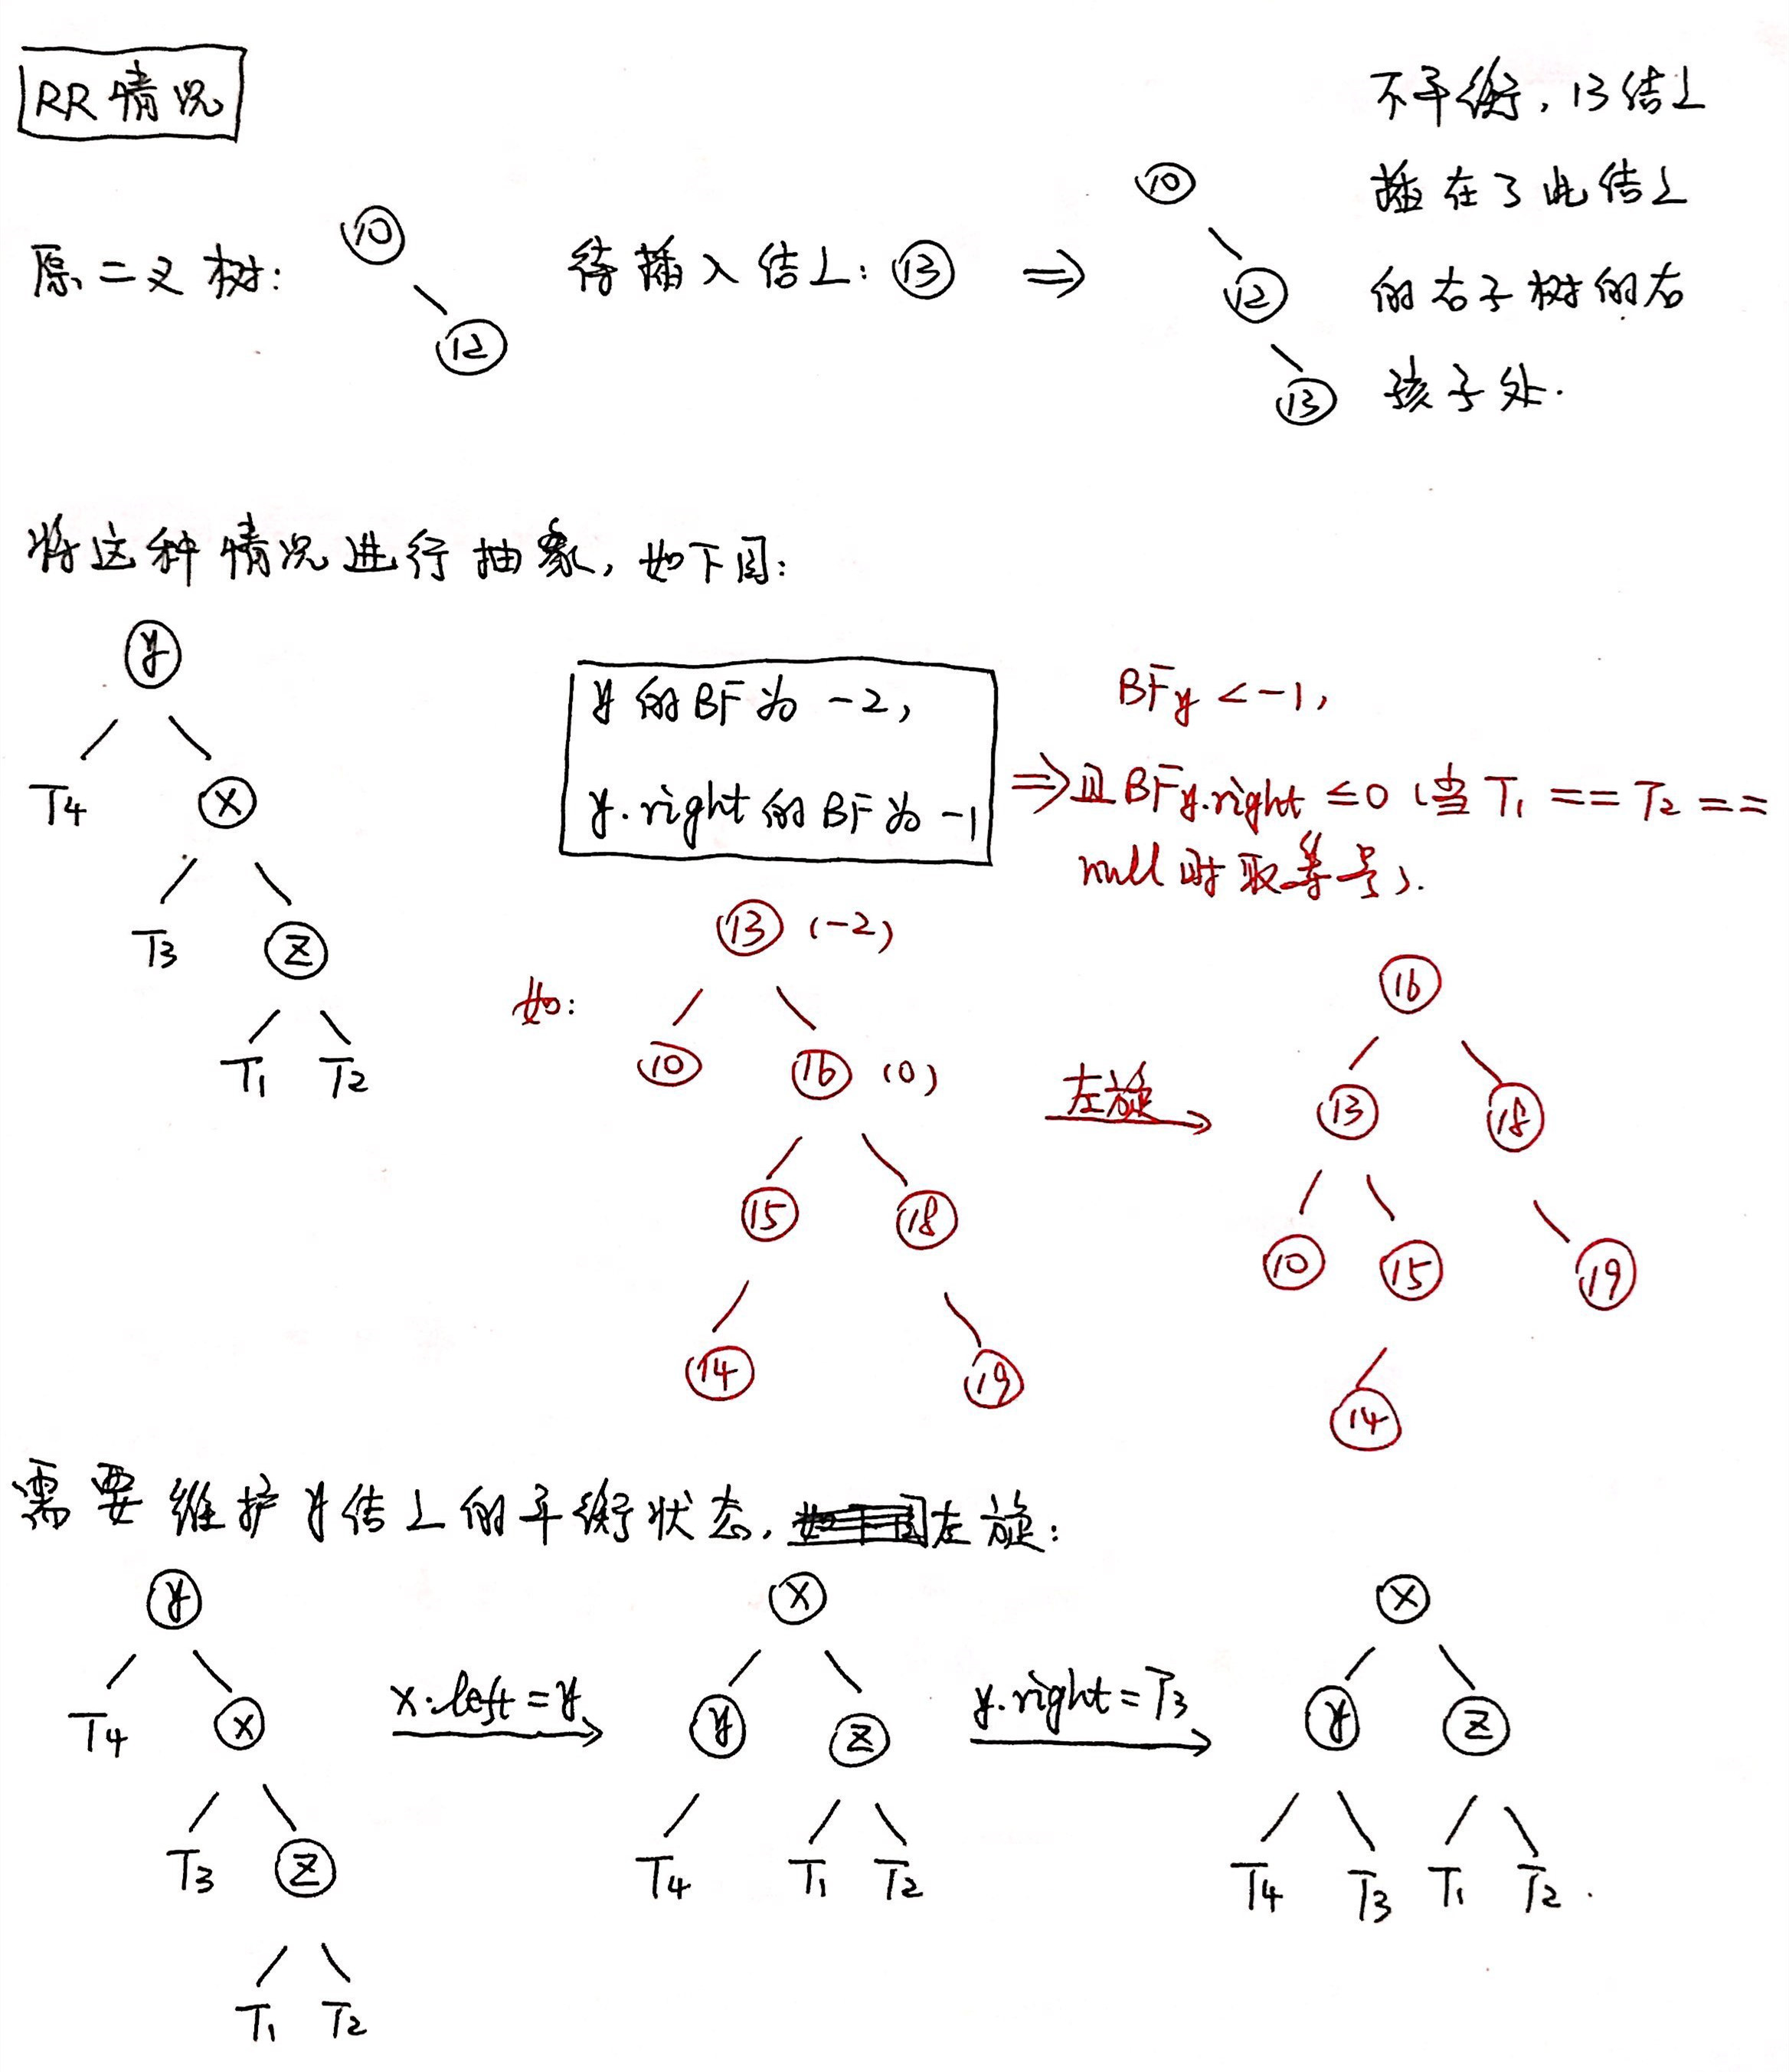 RR情况
不平衡，13结点
插在了此结点
的右子树的右
孩子处.
原二叉树：
10
12
待插入结点：13 ⇒
10
12
13
将这种情况进行抽象，如下图：
y
T4 x
T3 z
T1 T2
y的BF为 -2，
y.right的BF为 -1
BFy < -1，
⇒且BFy.right ≤0（当 T1 == T2 ==
null时取等号）.
如：
13 (-2)
10 16 (0)
15 18
14 19
左旋
16
13 18
10 15 19
14
需要维护y结点的平衡状态，左旋：
y
T4 x
T3 z
T1 T2
x.left = y
x
y z
T4 T1 T2
y.right = T3
x
y z
T4 T3 T1 T2 .